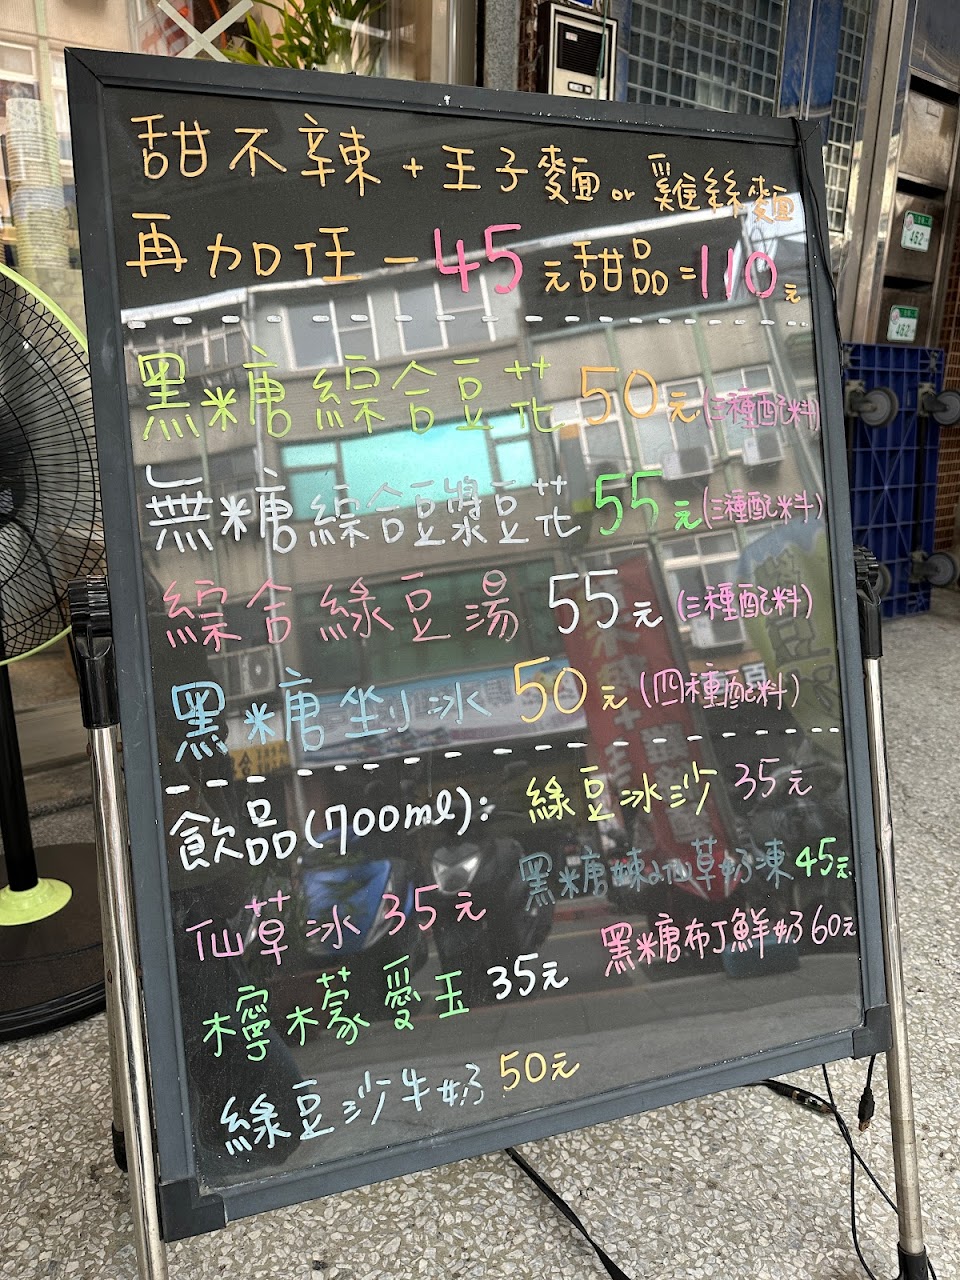 甜不辣+王子麵or雞絲麵
再加任一45元甜品=110元
黑糖綜合豆花50元(三種配料)
無糖綜合豆漿豆花55元(三種配料)
綜合綠豆湯55元(三種配料)
黑糖坐小冰50元(四種配料)
飲品(700ml):
綠豆冰沙35元
仙草冰35元
黑糖 仙草奶凍45元
檸檬愛玉35元
黑糖布丁鮮奶60元
綠豆沙牛奶50元
462
462